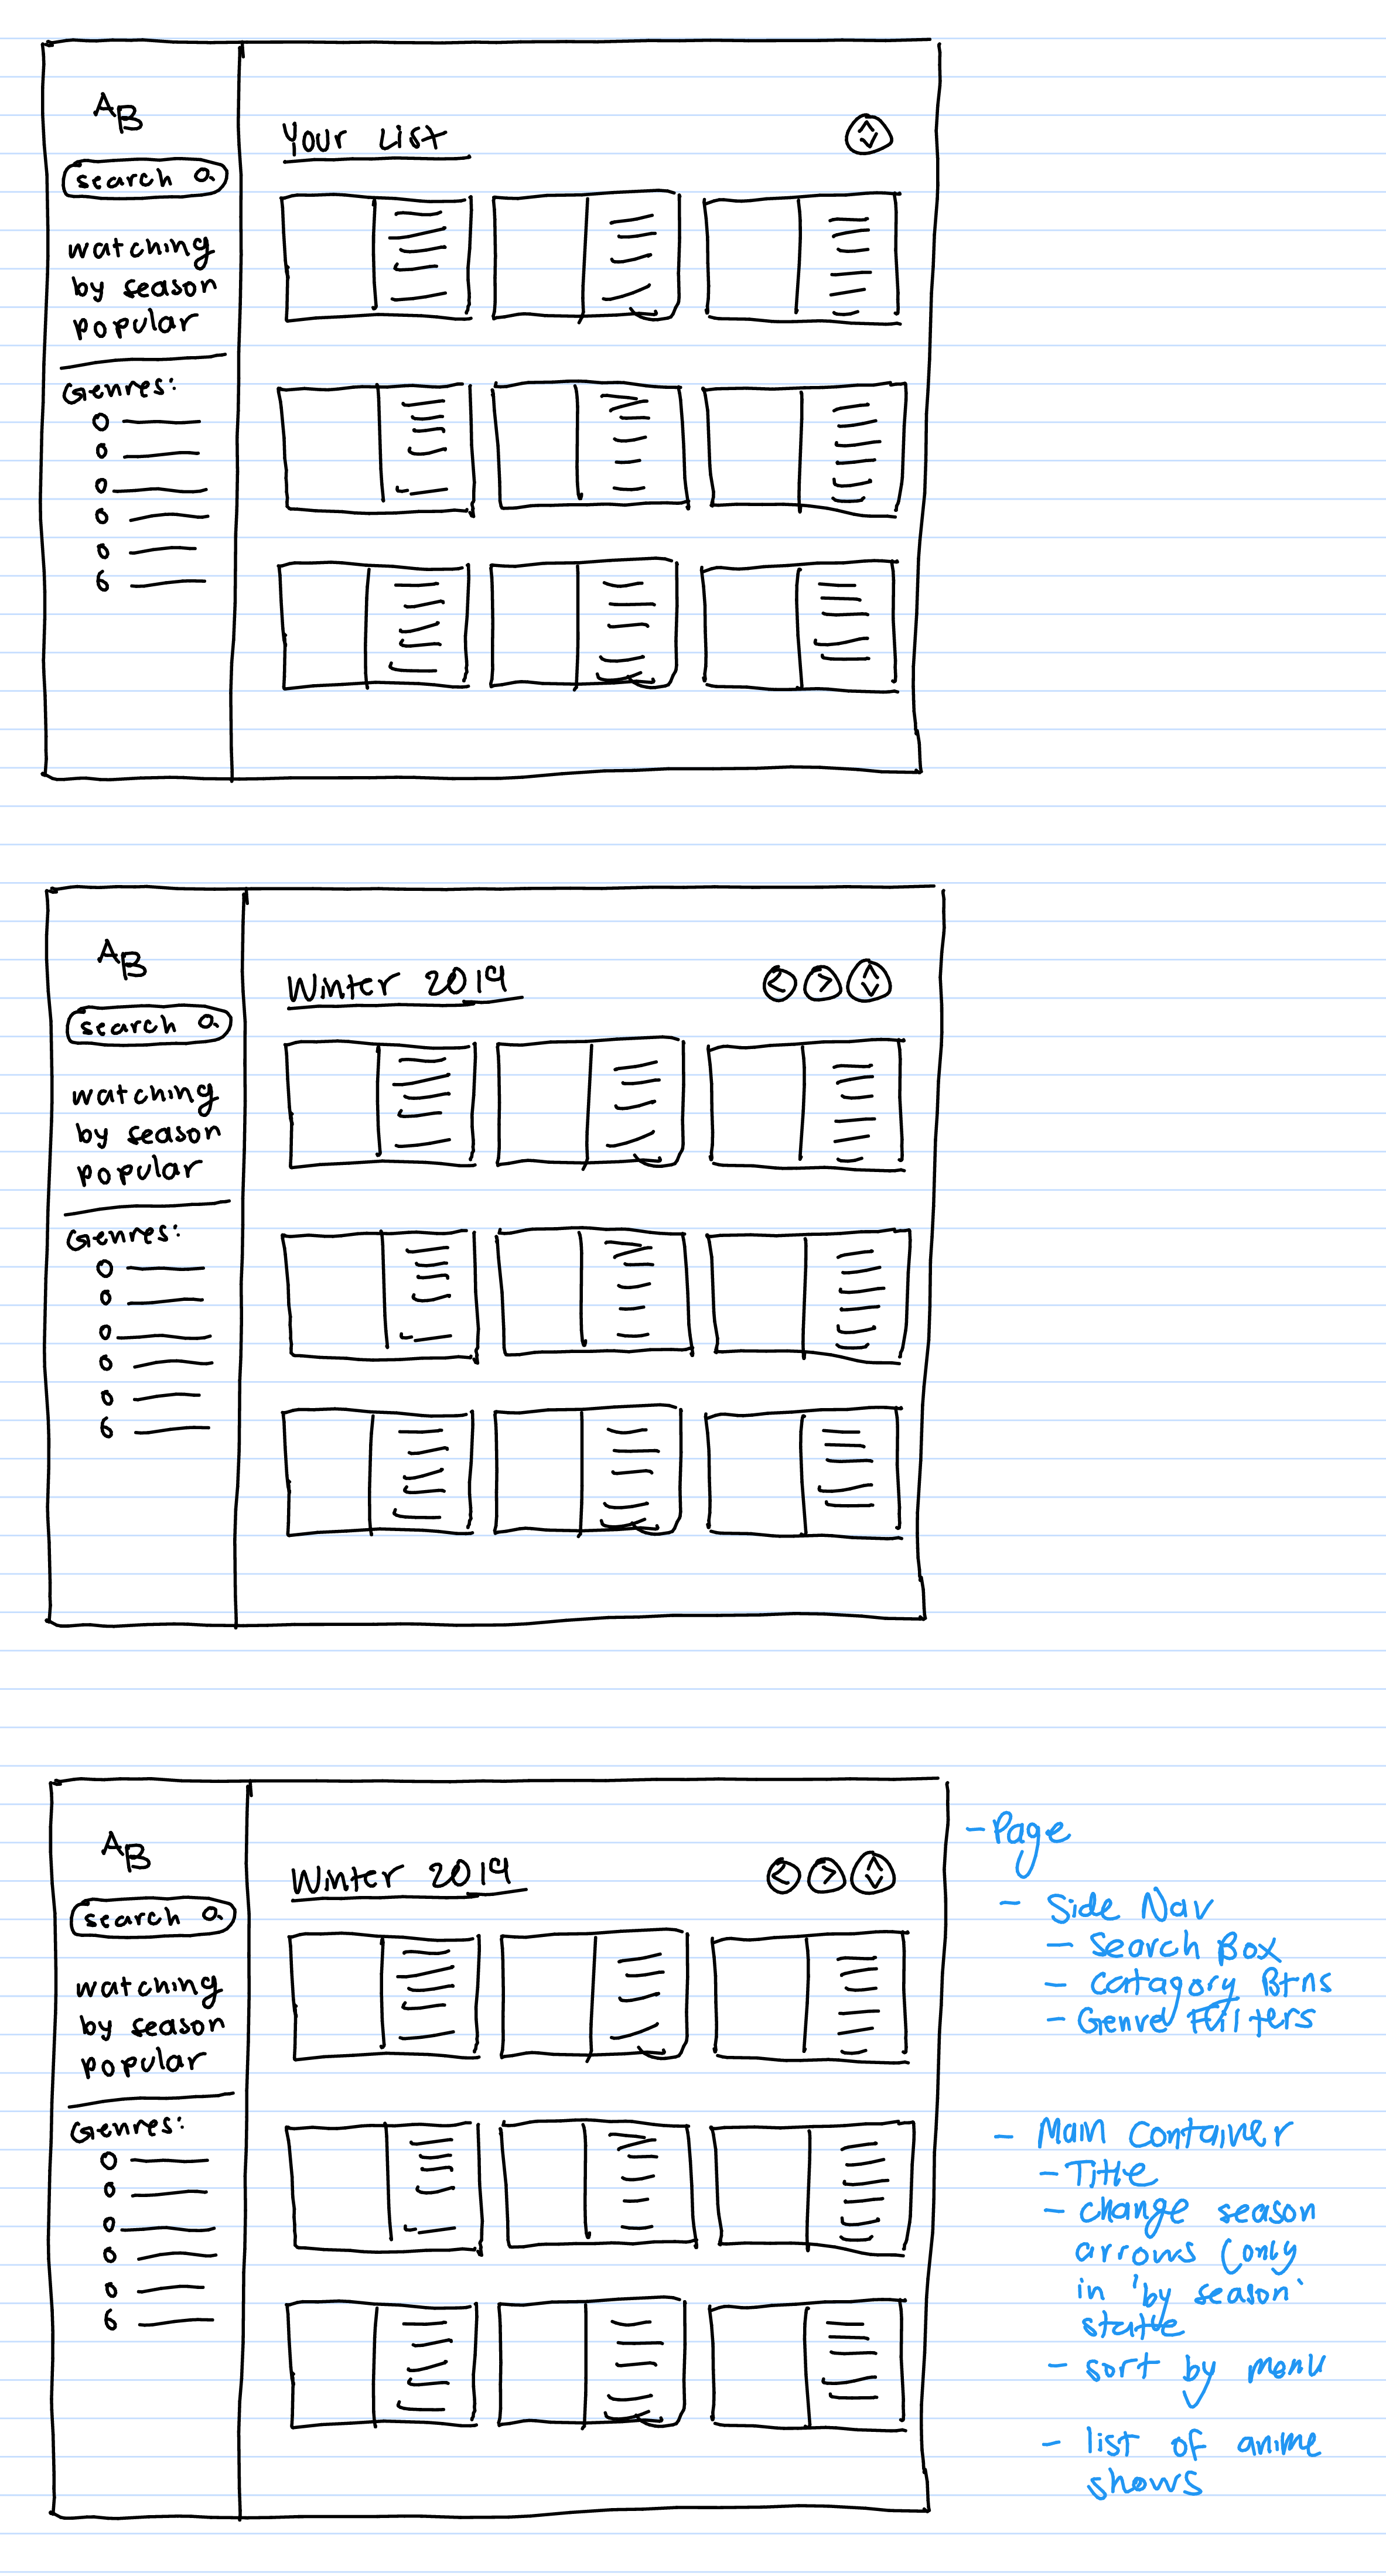 AB
search
watching
by season
popular
Genres:
Your List
AB
search
watching
by season
popular
Genres:
Winter 2019
< >
AB
search
watching
by season
popular
Genres:
Winter 2019
< >
- Page
- Side Nav
- Search Box
- Catagory Btns
- Genre Filters
- Main Container
- Title
- change season
arrows (only
in 'by season'
state
- sort by menu
- list of anime
shows